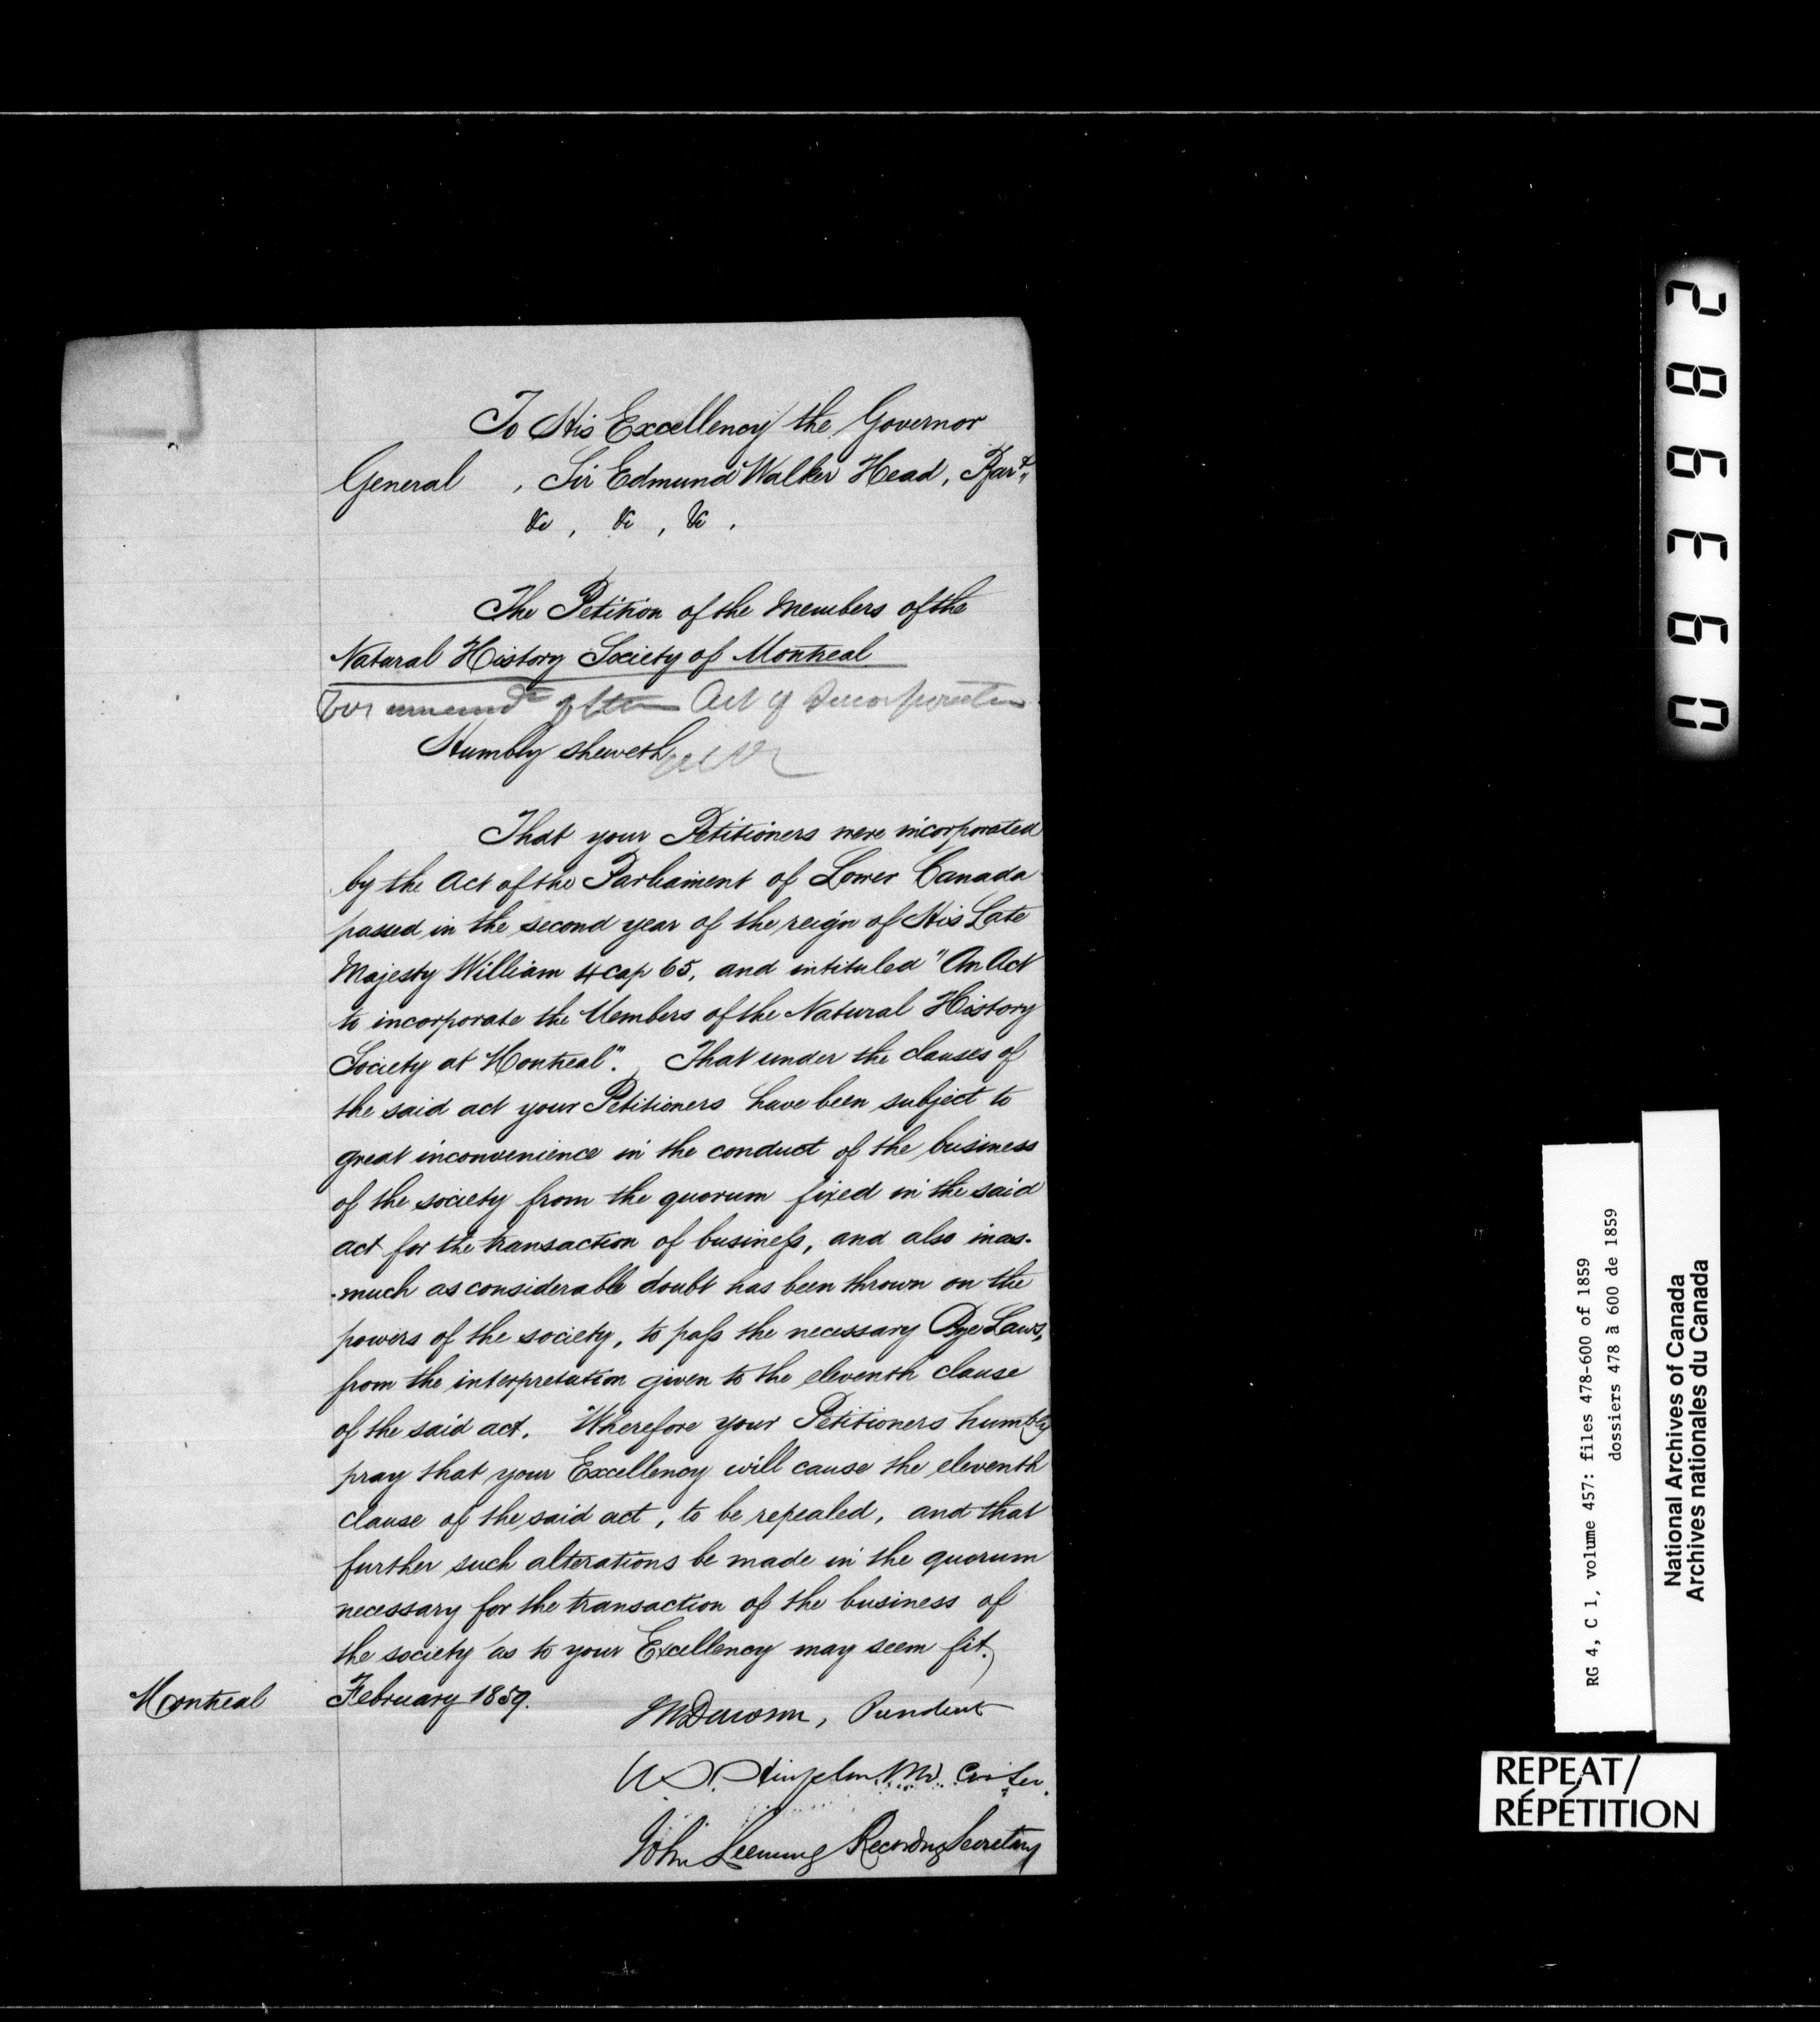 To His Excellency the Governor
General , Sir Edmund Walker Head, Bart.,
&c , &c , &c .
The Petition of the Members of the
Natural History Society of Montreal
for amendt of the Act of Incorporation
Humbly sheweth
That your Petitioners were incorporated
by the Act of the Parliament of Lower Canada
passed in the second year of the reign of His Late
Majesty William 4 cap 65, and intituled "An Act
to incorporate the Members of the Natural History
Society at Montreal". That under the clauses of
the said act your Petitioners have been subject to
great inconvenience in the conduct of the business
of the society from the quorum fixed in the said
act for the transaction of business, and also inas-
-much as considerable doubt has been thrown on the
powers of the society, to pass the necessary Bye Laws,
from the interpretation given to the eleventh clause
of the said act. Wherefore your Petitioners humbly
pray that your Excellency will cause the eleventh
clause of the said act, to be repealed, and that
further such alterations be made in the quorum
necessary for the transaction of the business of
the society as to your Excellency may seem fit.
Montreal February 1859.
President
W. H. Hingston M.D. Cor Sec.
John Leeming Recording Secretary
093982
RG 4, C 1, volume 457: files 478-600 of 1859
dossiers 478 à 600 de 1859
National Archives of Canada
Archives nationales du Canada
REPEAT/
RÉPÉTITION